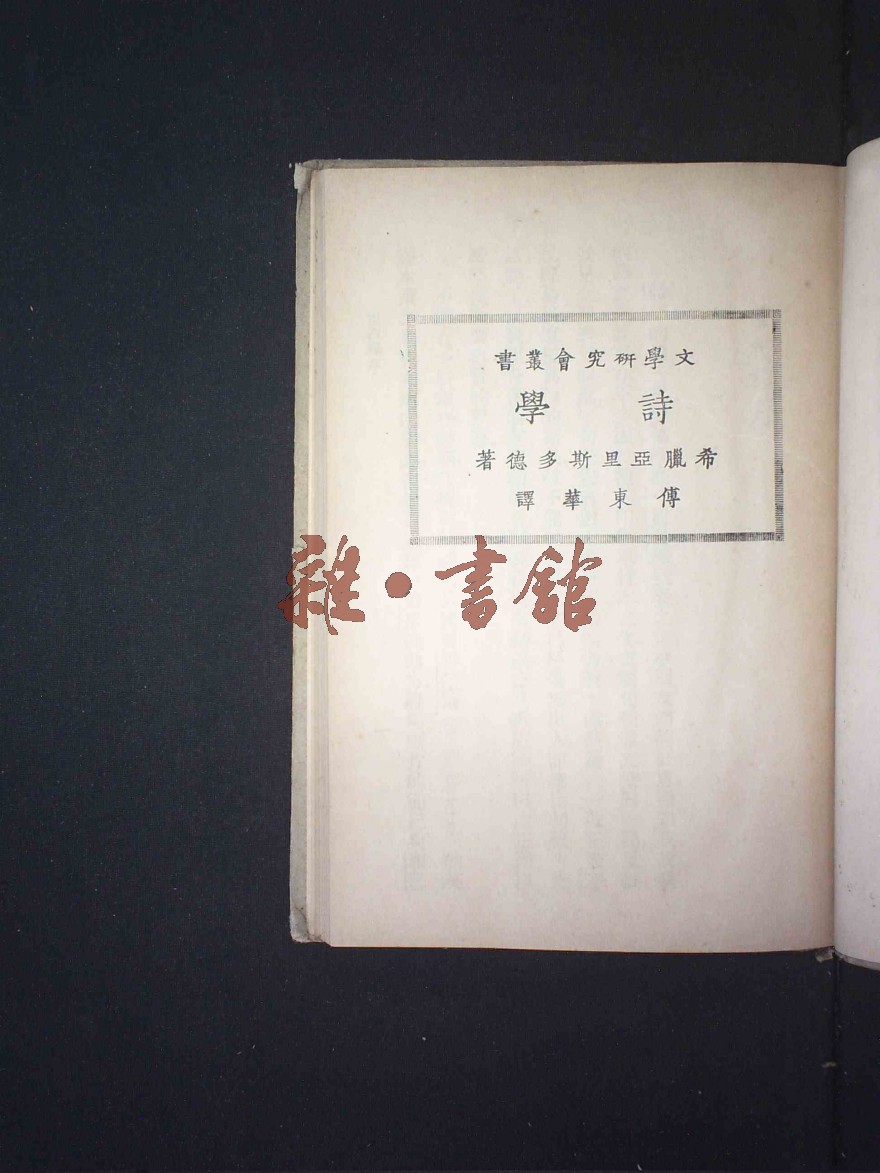 文學研究會叢書
詩學
希臘亞里斯多德著
傅東華譯
雜·書館